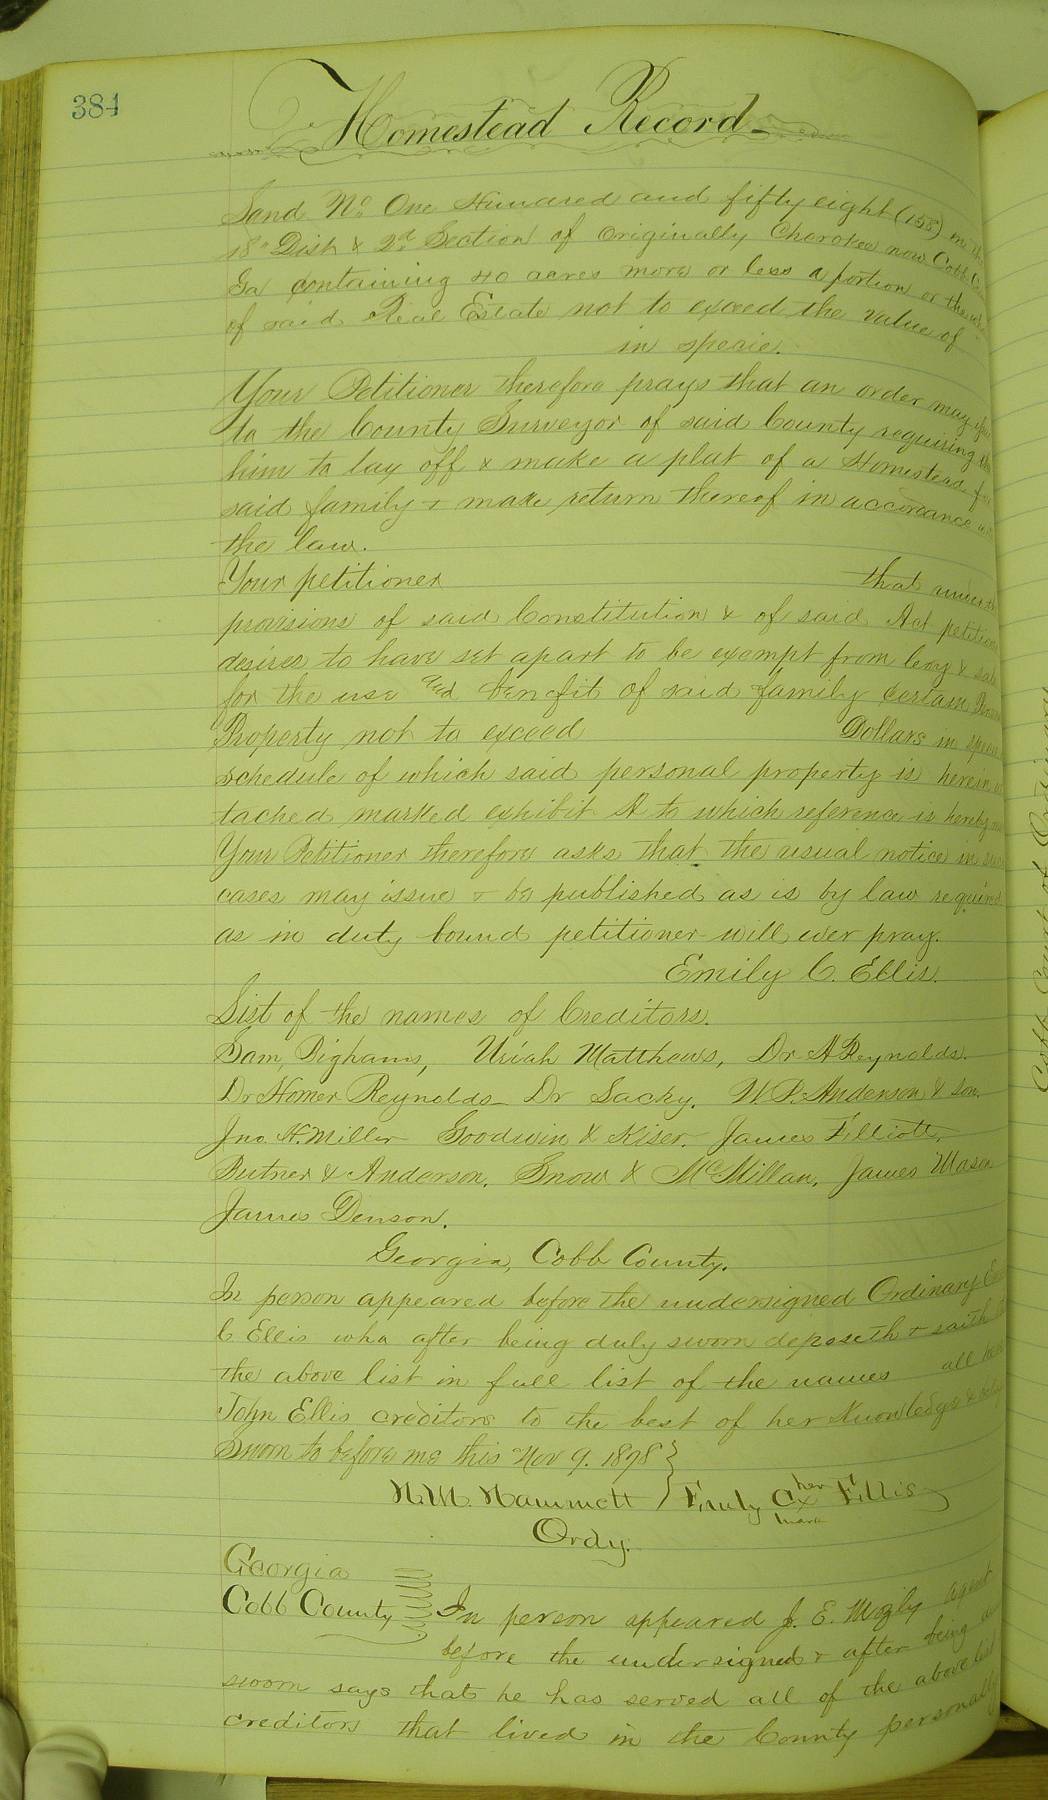 384
Homestead Record
Land No. One Hundred and fifty eight (158) in the
18th Dist & 2nd Section of Originally Cherokee now Cobb Co
Ga containing 40 acres more or less a portion or the
of said Real Estate not to exceed the value of
in specie.
Your Petitioner therefore prays that an order may
to the County Surveyor of said County requiring
him to lay off & make a plat of a Homestead for
said family & make return thereof in accordance
the law.
Your petitioner that under
provisions of said Constitution & of said Act petitioner
desires to have set apart to be exempt from levy & sale
for the use and benefit of said family certain
Property not to exceed Dollars in specie
schedule of which said personal property is herein
tached marked exhibit A to which reference is hereby
Your Petitioner therefore asks that the usual notice in such
cases may issue & be published as is by law required
as in duty bound petitioner will ever pray.
Emily C. Ellis.
List of the names of Creditors.
Sam, Bighams, Uriah Matthews, Dr A Reynolds.
Dr Homer Reynolds - Dr Lacky. W. P. Anderson & son.
Jno. H. Miller Goodwin & Kiser. James Elliott,
Butner & Anderson. Snow & McMillan. James Mason
James Denson.
Georgia, Cobb County.
In person appeared before the undersigned Ordinary
C Ellis who after being duly sworn deposeth & saith
the above list in full list of the names all
John Ellis creditors to the best of her Knowledge &
Sworn to before me this Nov 9. 1878
H. M. Hammett Emily C her x mark Ellis
Ordy.
Georgia
Cobb County In person appeared J. E. Mozly agent
before the undersigned & after being
sworn says that he has served all of the above list
creditors that lived in the County personally